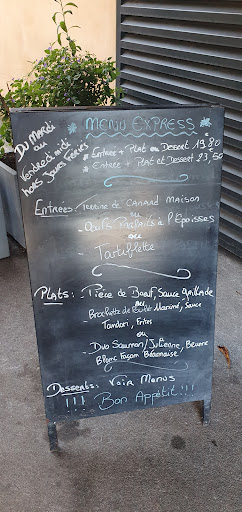 MENU EXPRESS
Du Mardi
au
Vendredi midi
hors Jours Fériés
* Entrée + Plat ou Dessert 19,80
* Entrée + Plat et Dessert 23,50
Entrées: Terrine de Canard Maison
ou
Oeufs Pochés à l'Epoisses
ou
Tartiflette
Plats: Pièce de Boeuf, Sauce
ou
Brochette de Poulet Mariné, Sauce
Tandoori, Frites
ou
Duo Saumon/Julienne, Beurre
Blanc Façon Béarnaise
Desserts: Voir Menus
!!! Bon Appétit!!!